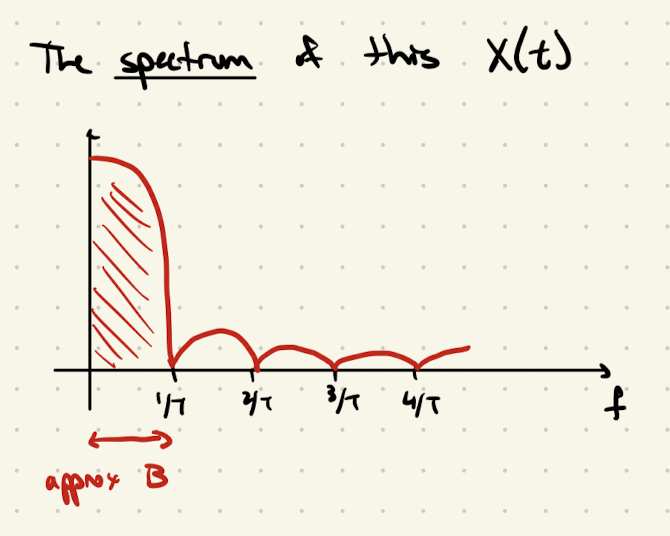 The spectrum of this X(t)
1/T 2/T 3/T 4/T f
approx B